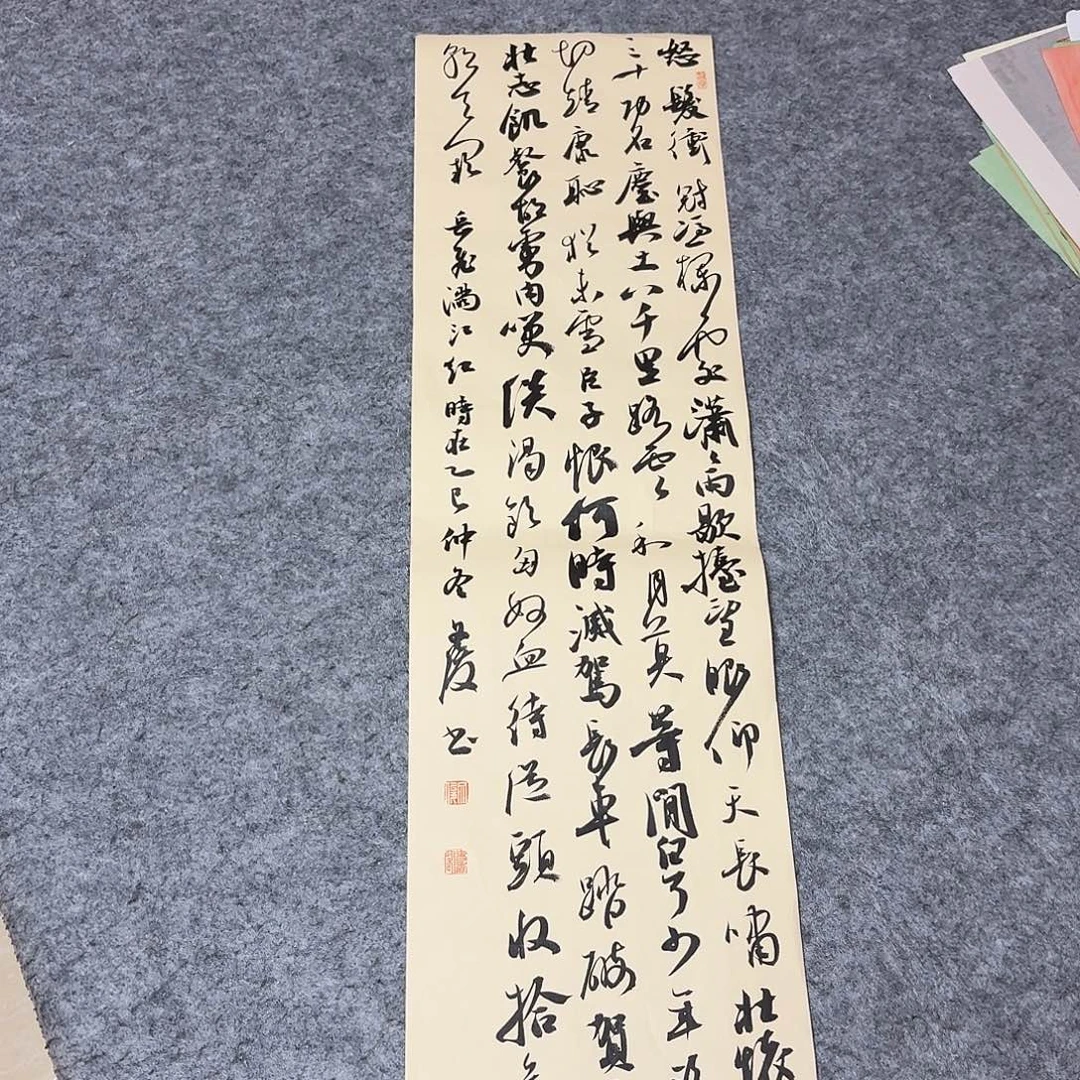 怒髮衝冠憑欄處瀟々雨歇擡望眼仰天長嘯壯懷
三十功名塵與土八千里路雲和月莫等閒白了少年
切靖康恥猶未雪臣子恨何時滅駕長車踏破賀
壯志飢餐胡虜肉笑談渴飲匈奴血待從頭收拾
朝天闕 岳飛滿江紅 時在乙巳仲冬 書